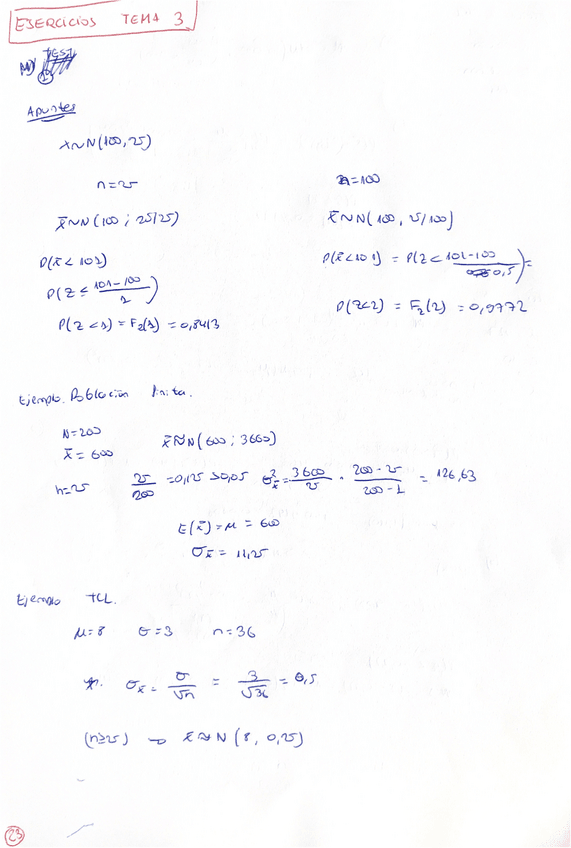 EJERCICIOS TEMA 3
TEST
Apuntes
X~N(100,25)
n=25
x̄~N(100; 25/25)
P(x̄ < 101)
P(Z ≤ (101-100)/1)
P(Z<1) = F_Z(1) = 0,8413
n=100
x̄~N(100, 25/100)
P(x̄<101) = P(Z < (101-100)/0,5) =
P(Z<2) = F_Z(2) = 0,9772
Ejemplo. Población finita.
N=200
x̄ = 600
x̄ ≈ N(600; 3600)
n=25
25/200 = 0,125 > 0,05 σ²_x̄ = 3600/25 · (200-25)/(200-1) = 126,63
E(x̄) = μ = 600
σ_x̄ = 11,25
Ejemplo TCL.
μ=8 σ=3 n=36
σ_x̄ = σ/√n = 3/√36 = 0,5
(n≥25) → x̄ ≈ N(8, 0,25)
23